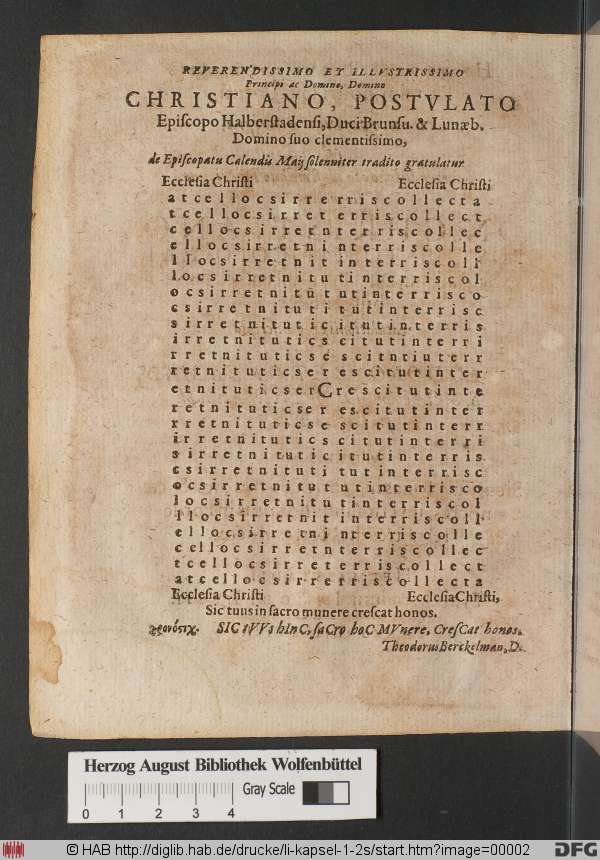 REVERENDISSIMO ET ILLVSTRISSIMO
Principi ac Domino, Domino
CHRISTIANO, POSTVLATO
Episcopo Halberstadensi, Duci Brunsu. & Lunæb.
Domino suo clementissimo,
de Episcopatu Calendis Maij solenniter tradito gratulatur
Ecclesia Christi Ecclesia Christi
a t c e l l o c s i r r e r r i s c o l l e c t a
t c e l l o c s i r r e t e r r i s c o l l e c t
c e l l o c s i r r e t n t e r r i s c o l l e c
e l l o c s i r r e t n i n t e r r i s c o l l e
l l o c s i r r e t n i t i n t e r r i s c o l l
l o c s i r r e t n i t u t i n t e r r i s c o l
o c s i r r e t n i t u t u t i n t e r r i s c o
c s i r r e t n i t u t i t u t i n t e r r i s c
s i r r e t n i t u t i c i t u t i n t e r r i s
i r r e t n i t u t i c s c i t u t i n t e r r i
r r e t n i t u t i c s e s c i t n t i u t e r r
r e t n i t u t i c s e r e s c i t u t i n t e r
e t n i t u t i c s e r C r e s c i t u t i n t e
r e t n i t u t i c s e r e s c i t u t i n t e r
r r e t n i t u t i c s e s c i t u t i n t e r r
i r r e t n i t u t i c s c i t u t i n t e r r i
s i r r e t n i t u t i c i t u t i n t e r r i s
c s i r r e t n i t u t i t u t i n t e r r i s c
o c s i r r e t n i t u t u t i n t e r r i s c o
l o c s i r r e t n i t u t i n t e r r i s c o l
l l o c s i r r e t n i t i n t e r r i s c o l l
e l l o c s i r r e t n i n t e r r i s c o l l e
c e l l o c s i r r e t n t e r r i s c o l l e c
t c e l l o c s i r r e t e r r i s c o l l e c t
a t c e l l o c s i r r e r r i s c o l l e c t a
Ecclesia Christi Ecclesia Christi,
Sic tuus in sacro munere crescat honos.
SIC tVVs hInC, saCro hoC MVnere, CresCat honos.
Theodorus Berckelman, D.
Herzog August Bibliothek Wolfenbüttel
Gray Scale
0 1 2 3 4
© HAB http://diglib.hab.de/drucke/li-kapsel-1-2s/start.htm?image=00002
DFG